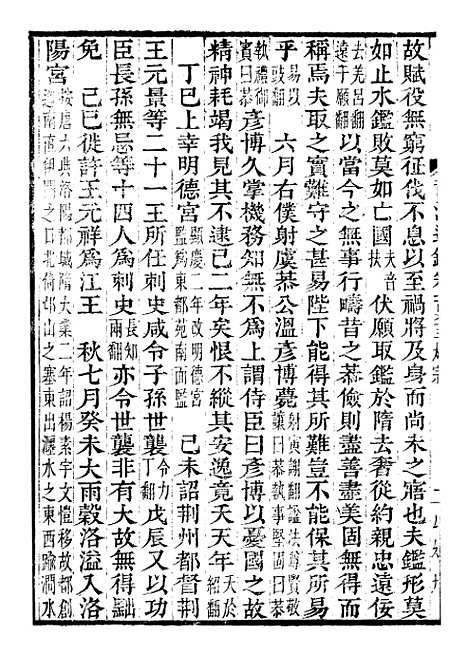 故賦役無窮征伐不息以至禍將及身而尚未之寤也夫鑑形莫
如止水鑑敗莫如亡國夫音扶伏願取鑑於隋去奢從約親忠遠佞
去羌呂翻遠于願翻以當今之無事行疇昔之恭儉則盡善盡美固無得而
稱焉夫取之實難守之甚易陛下能得其所難豈不能保其所易
乎易以豉翻　六月右僕射虞恭公溫彥博薨射寅謝翻諡法尊賢敬讓曰恭執事堅固曰恭
執禮御賓曰恭彥博久掌機務知無不為上謂侍臣曰彥博以憂國之故
精神耗竭我見其不逮已二年矣恨不縱其安逸竟夭天年夭於紹翻
　丁巳上幸明德宮顯慶二年改明德宮監為東都苑南面監　己未詔荆州都督荆
王元景等二十一王所任刺史咸令子孫世襲令力丁翻戊辰又以功
臣長孫無忌等十四人為刺史長知兩翻亦令世襲非有大故無得黜
免　己巳徙許王元祥為江王　秋七月癸未大雨穀洛溢入洛
陽宮按唐六典洛陽都城隋大業二年詔楊素宇文愷移故都創造南直伊闕之口北倚邙山之塞東出瀍水之東西踰澗水